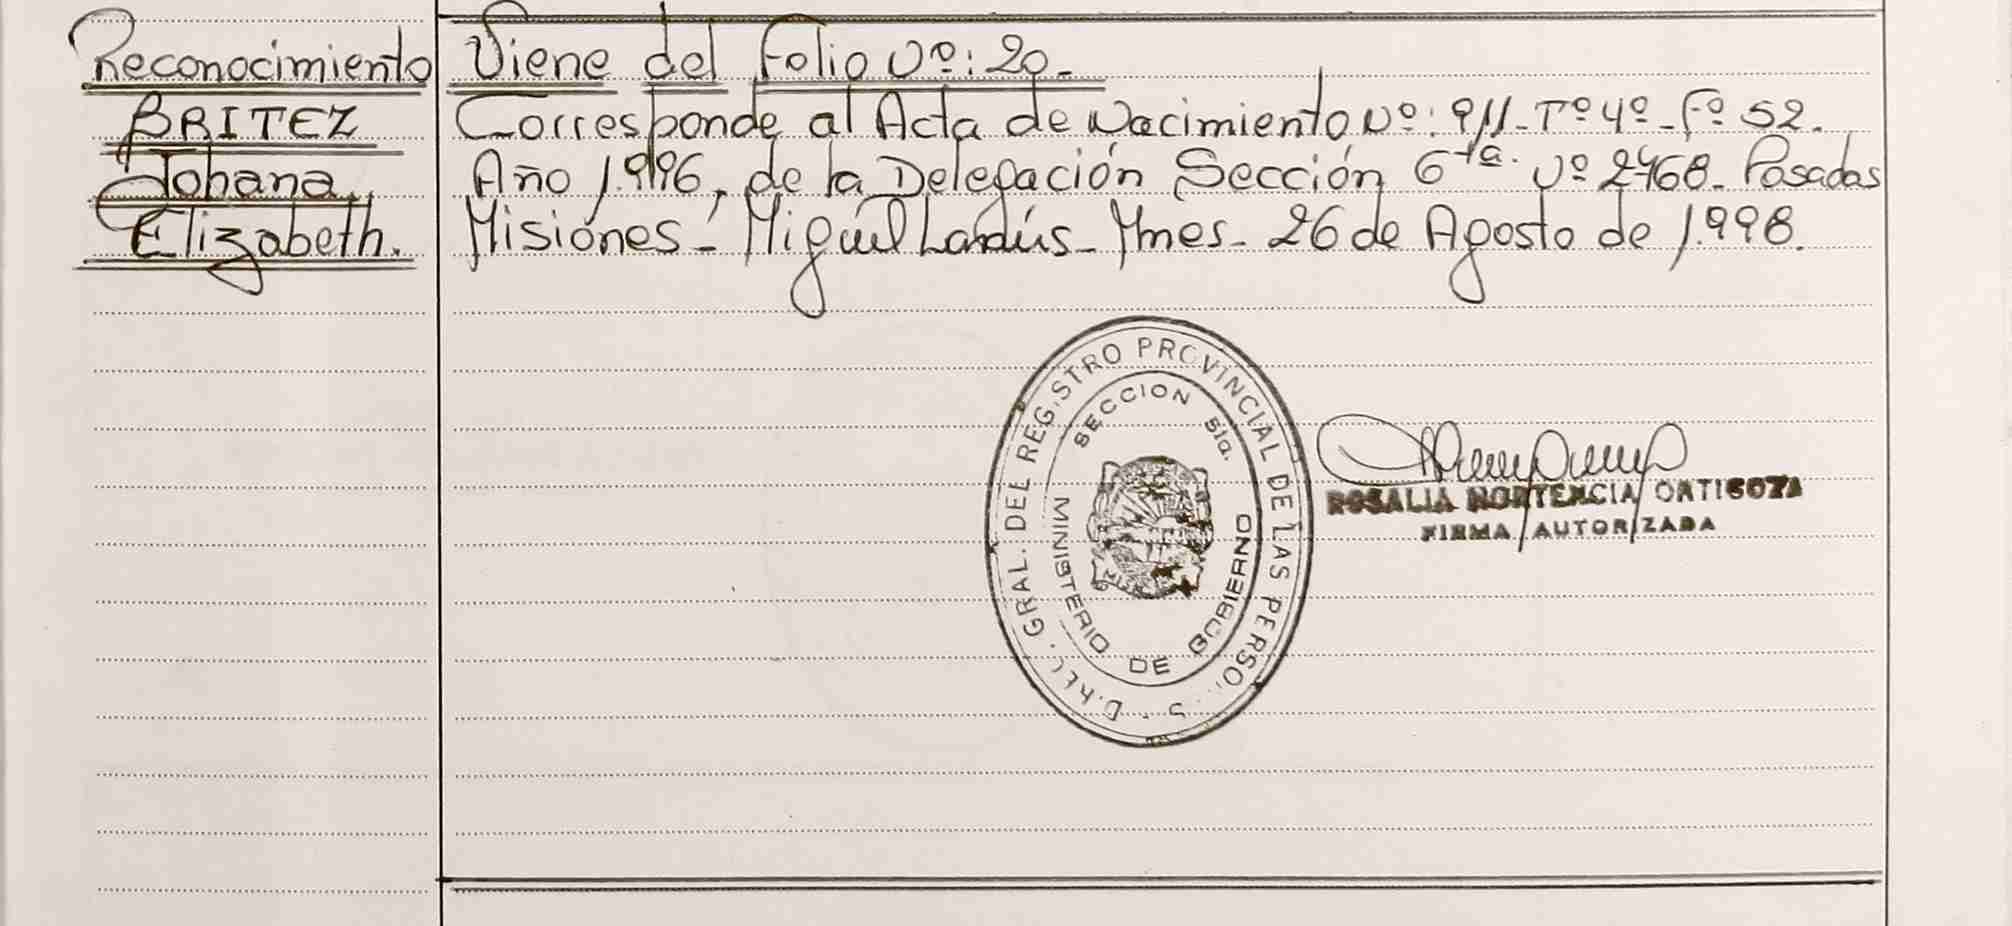 Reconocimiento
BRITEZ
Johana
Elizabeth.
Viene del Folio Nº: 20.-
Corresponde al Acta de Nacimiento Nº: 911- Tº 4º - Fº 52.
Año 1.996, de la Delegación Sección 6ta. Nº 2468- Posadas
Misiones- Miguel Lanús- Mnes- 26 de Agosto de 1.998.
DIREC. GRAL. DEL REGISTRO PROVINCIAL DE LAS PERSONAS
SECCION 5ta.
MINISTERIO DE GOBIERNO
ROSALIA HORTENCIA ORTIGOZA
FIRMA AUTORIZADA